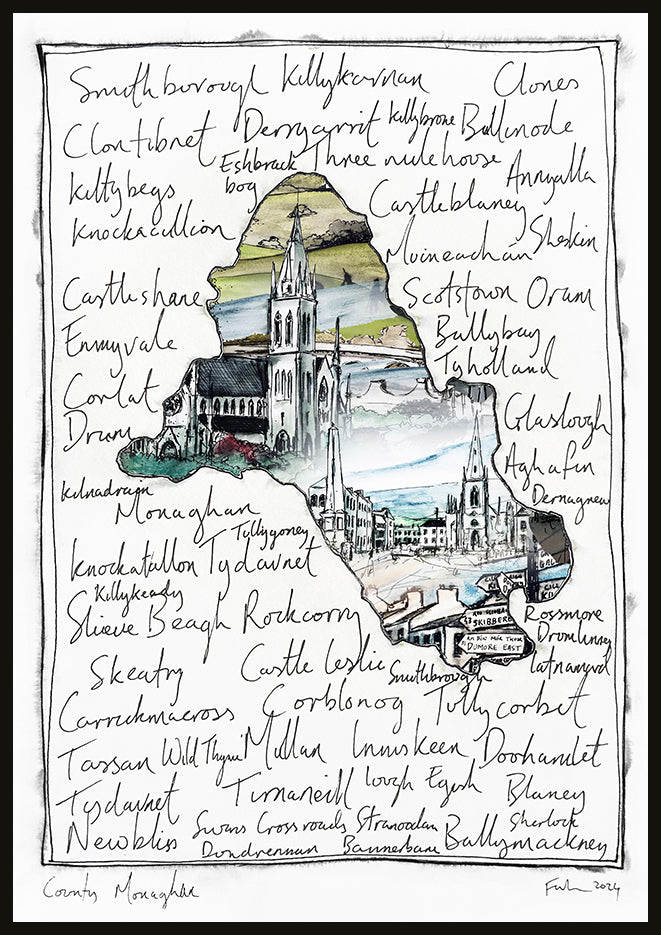 Smithborough Killykarnan Clones
Clontibret Derrygarrit Killybrone Ballinode
Eshbrack Three mile house
Kiltybegs bog Castleblaney Annyalla
Knockacullion Muineachán Sheskin
Castleshane Scotstown Oram
Emmyvale Ballybay
Tyholland
Corlat Glaslough
Drum Aghafin
Kilnadrain Dernagrew
Monaghan
Tullygoney
Knockatallon Tydavnet
Killykeady
Slieve Beagh Rockcorry
SKISSBERE
AN DÚN MÓR THOIR
DUMORE EAST
Rossmore
Drumlinsey
Skeatry Castle Leslie Latnamard
Smithbrough
Carrickmacross Corblonog Tullycorbet
Tassan Wild Thyme Mullan Inniskeen Doohamlet
Tydavnet Tirnaneill Lough Egish Blaney
Newbliss Swans Cross roads Stranoodan Sherlock
Dundrennan Bannerbane Ballymackney
County Monaghan
2024